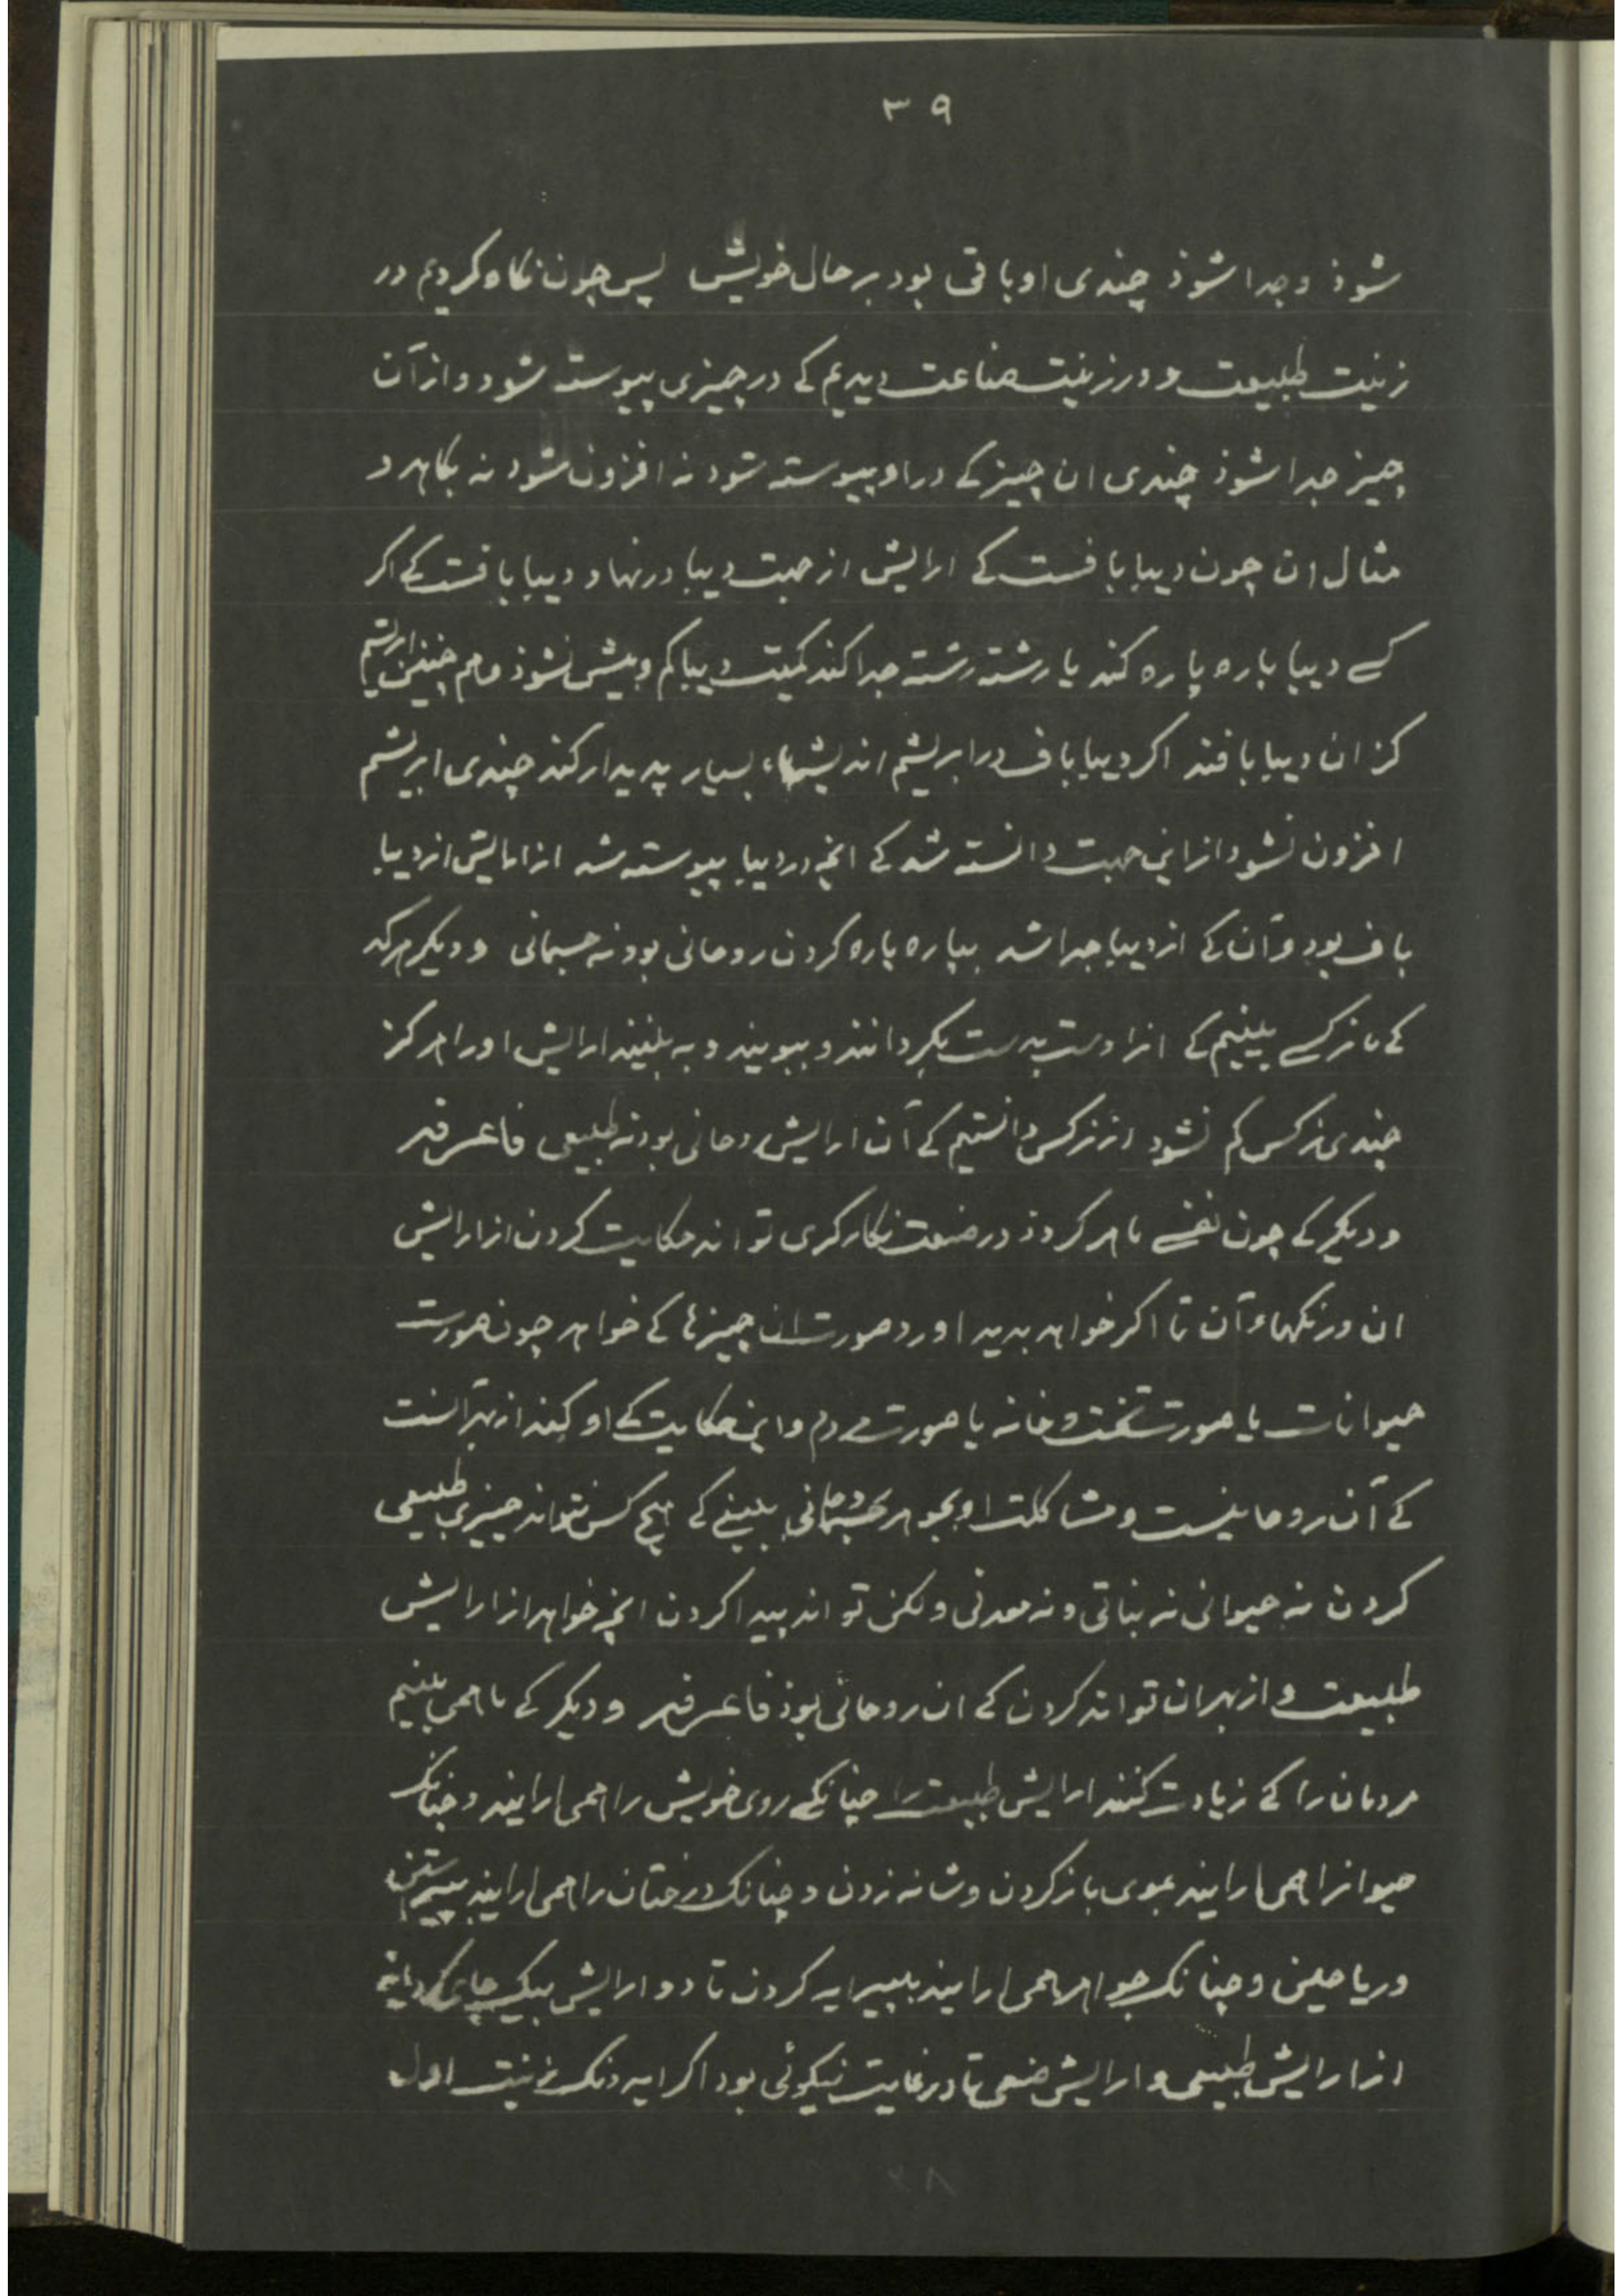 ۳۹
شوذ و جدا شوذ چندی او باقی بود بر حال خویش پس چون نکاه کردیم در
زینت طبیعت و در زینت صناعت دیدیم کے در چیزی پیوسته شود و از آن
چیز جدا شوذ چندی ان چیز کے در او پیوسته شود نه افزون شود نه بکاهد و
مثال ان چون دیبا بافست کے ارایش از جهت دیبا در نهاد دیبا بافت کے اکر
کسے دیبا پاره پاره کند یا رشته رشته جدا کند کمیت دیبا کم و بیش نشوذ و هم چنین ابریشم
کز ان دیبا بافند اکر دیبا باف در ابریشم اندیشهاء بسیار پدیدار کند چندی ابریشم
افزون نشود از این جهت دانسته شد کے انچه در دیبا پیوسته شد از ارایش از دیبا
باف بود و آن کے از دیبا جدا شد بپاره پاره کردن روحانی بود نه جسمانی و دیکر هر که
کے ما نرکسے ببینیم کے انرا دست بدست بکردانند و ببویند و به بینند ارایش او را هرکز
چندی نرکس کم نشود از نرکس دانستیم کے آن ارایش روحانی بود نه طبیعی فاعرفه
و دیکر کے چون نفسے ماهر کردذ در صنعت نکارکری تواند حکایت کردن از ارایش
ان و رنکهاء آن تا اکر خواهد بدید اورد صورت ان چیزها کے خواهد چون صورت
حیوانات یا صورت تخت و خانه یا صورت مردم و این حکایت کے او کند از بهر آنست
کے آن روحانیست و مشاکلت او بجوهر جسمانی ببینے کے هیچ کس نتواند چیزی طبیعی
کردن نه حیوانی نه نباتی و نه معدنی و لکن تواند پیدا کردن انچه خواهد از ارایش
طبیعت و از بهر ان تواند کردن کے ان روحانی بوذ فاعرفه و دیکر کے ما همی بینیم
مردمان را کے زیادت کنند ارایش طبیعت را چنانکے روی خویش را همی ارایند و چنانک
حیوانرا همی ارایند بموی باز کردن و شانه زدن و چنانک درختان را همی ارایند بپیراستن
و ریاحین و چنانک جواهر همی ارایند بپیرایه کردن تا دو ارایش بیک جای کرد
از ارایش طبیعی و ارایش صنعی تا در غایت نیکوئی بود اکر ایدونک زینت اول